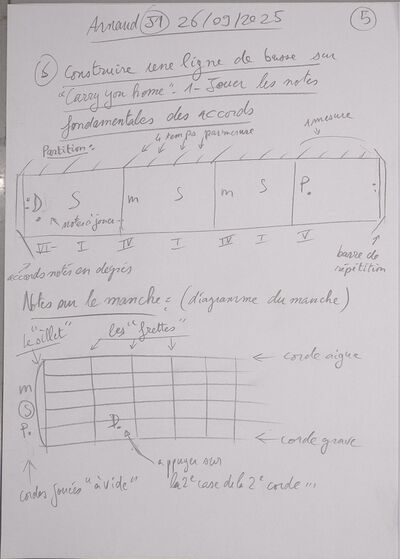 Arnaud S1 26/09/2025 5
6 Construire une ligne de basse sur
"Carry you home" 1- Jouer les notes
fondamentales des accords
Partition: 4 temps par mesure 1 mesure
D. S m S m S P.
notes à jouer
VI- I IV I IV I V
accords notés en degrés barre de
répétition
Notes sur le manche: (diagramme du manche)
"le sillet" les "frettes"
corde aigue
m
S
P. D.
corde grave
appuyer sur
cordes jouées "à vide" la 2e case de la 2e corde ...